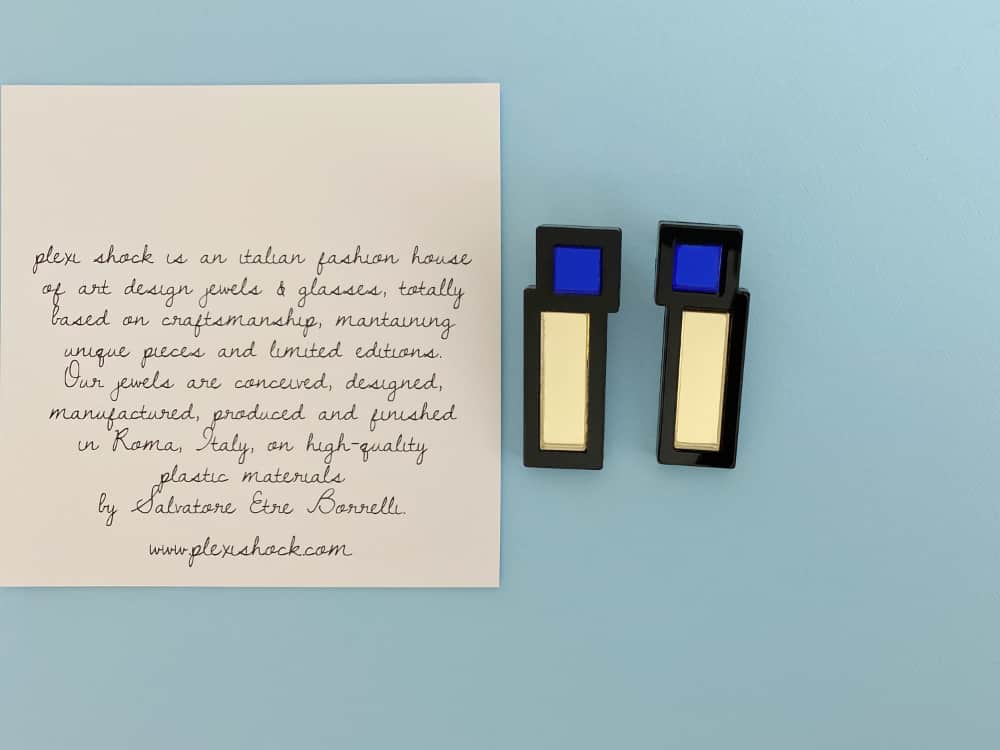 plexi shock is an italian fashion house
of art design jewels & glasses, totally
based on craftsmanship, mantaining
unique pieces and limited editions.
Our jewels are conceived, designed,
manufactured, produced and finished
in Roma, Italy, on high-quality
plastic materials
by Salvatore Etre Borrelli.
www.plexishock.com